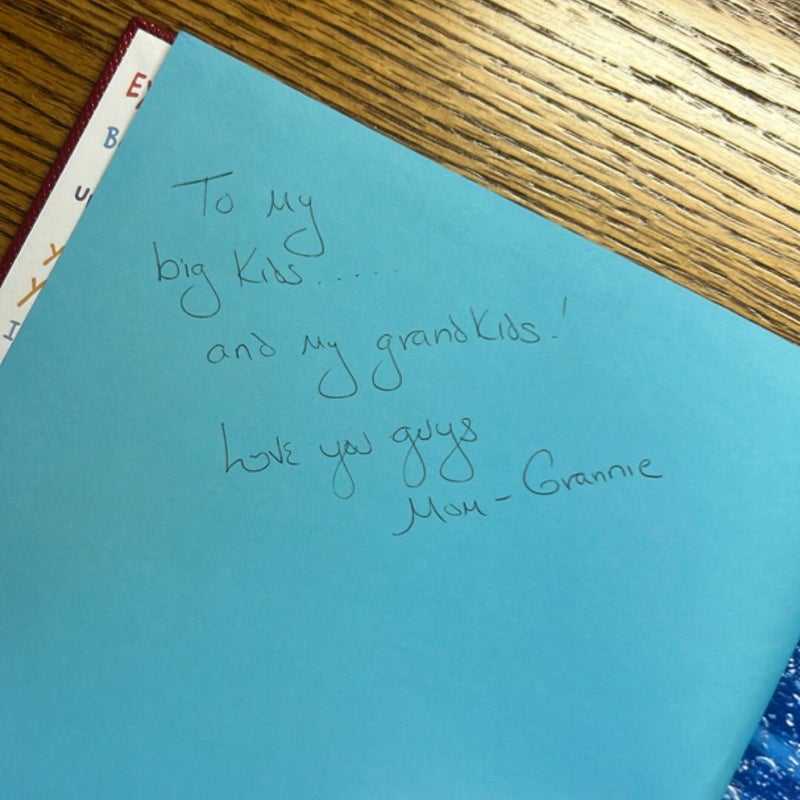 To My
big Kids.....
and my grandKids!
Love you guys
Mom - Grannie